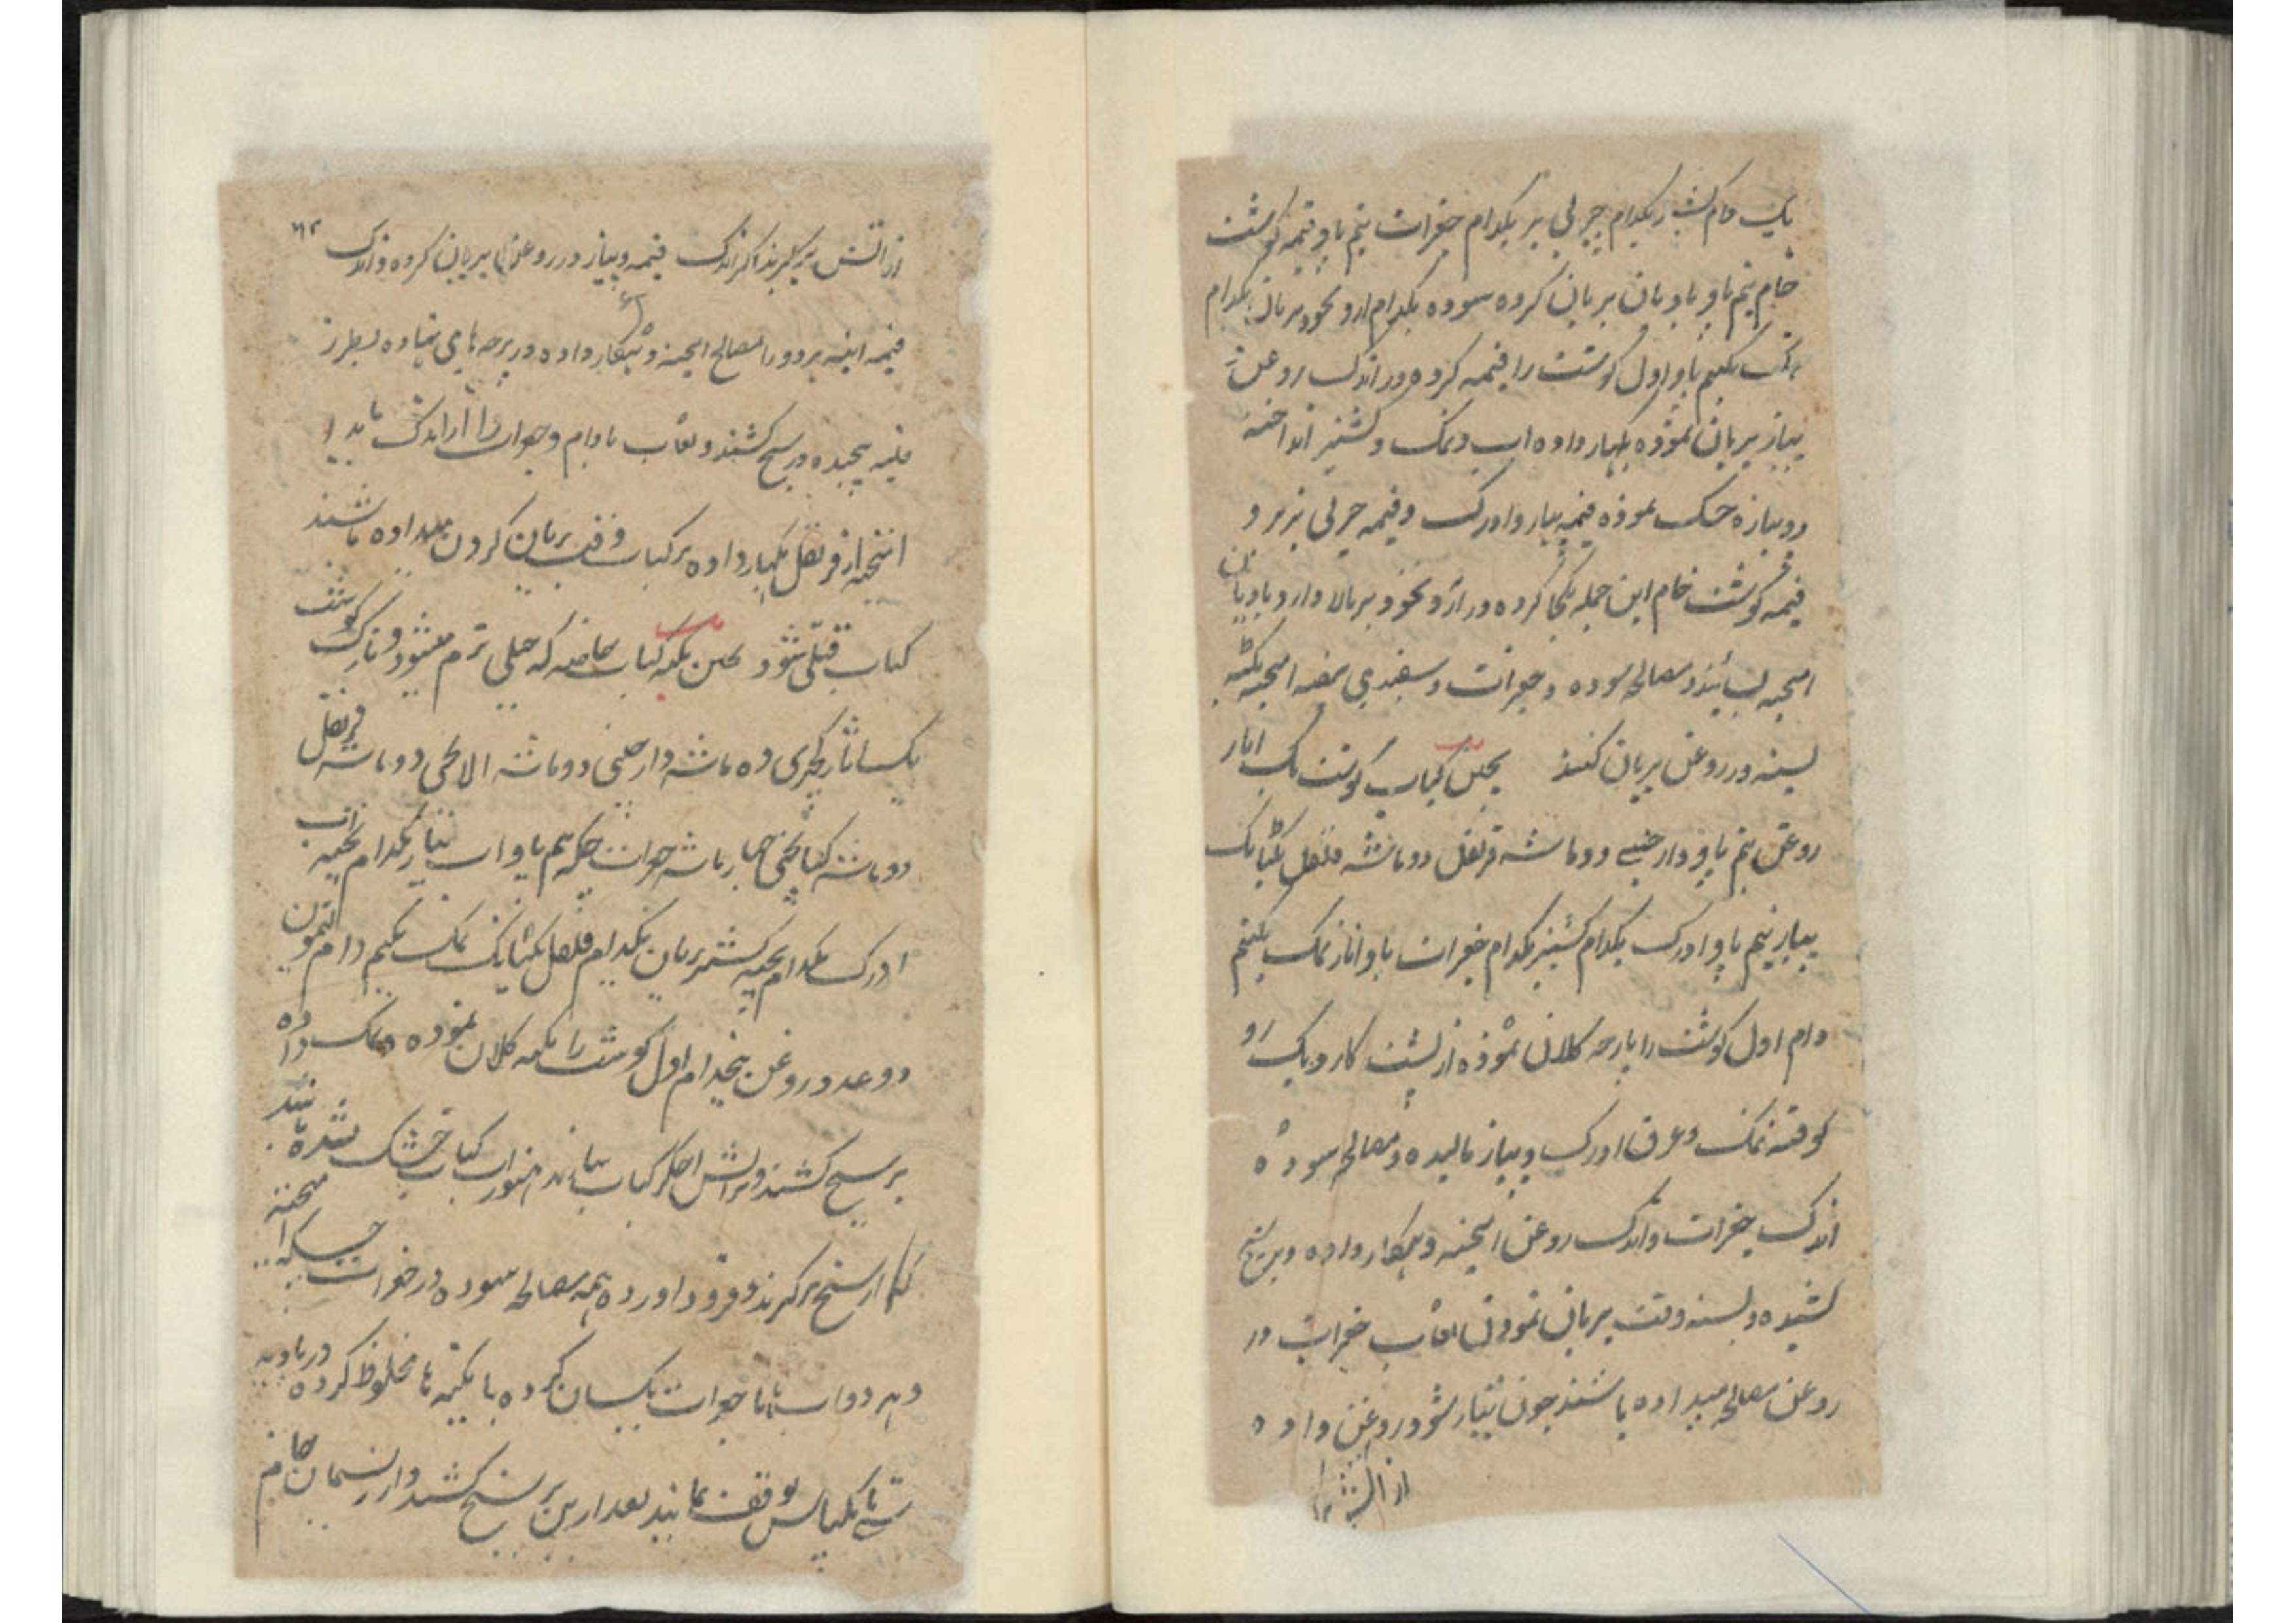 یک دام کشنیز یکدام چربی بز یکدام جغرات نیم پاو قیمه گوشت
خام نیم پاو بادیان بریان کرده سوده یکدام ارد نخود بریان یکدام
نمک یکنیم پاو اول گوشت را قیمه کرده در اندک روغن
پیاز بریان نموده بگهار داده اب و نمک و کشنیز انداخته
دوپیازه خشک نموده قیمه پیاز و ادرک و قیمه چربی بزبز و
قیمه گوشت خام این جمله یکجا کرده در ارد نخود بریان و ارد بادیان
امیخته بسایند و مصالح سوده و جغرات و سفیدی بیضه امیخته تکه
بسته در روغن بریان کنند کباب گوشت یک اثار
روغن نیم پاو دارچینی دو ماشه قرنفل دو ماشه فلفل یکتانک
پیاز نیم پاو ادرک یکدام کشنیز یکدام جغرات پاو اثار نمک یکنیم
دام اول گوشت را پارچه کلان نموده از پشت کارد یک رو
کوفته نمک و عرق ادرک و پیاز مالیده و مصالح سوده
اندک جغرات و اندک روغن امیخته و بگهار داده و بر سیخ
کشیده و بسته وقت بریان نمودن لعاب جغرات در
روغن مصالح میداده باشند چون تیار شود روغن داده
از اتش
از اتش برگیرند اگر اندک قیمه و پیاز در روغن بریان کرده و اندک
قیمه هر دو را مصالح امیخته و بگهار داده در پرچه های نهاده بطرز
فتیله پیچیده در سیخ کشند و لعاب بادام و جغرات را اندک
امیخته از قرنفل بگهار داده بر کباب وقت بریان کردن میداده باشند
کباب قتلی شود تکه کباب خاصه که خیلی نرم میشود و نازک گوشت
یکساثار کچری ده ماشه دارچینی دو ماشه الاچی دو ماشه قرنفل
دو ماشه چهار ماشه جغرات چکه نیم پاو اب پیاز یکدام پخته اب
ادرک یکدام پخته کشنیز بریان یکدام فلفل یکتانک نمک یکنیم دام لیمون
دو عدد روغن پنجدام اول گوشت را تکه کلان نموده نمک داده
بر سیخ کشند و بر اتش اخگر کباب نمایند هنوز اب کباب خشک نشده باشد
که از سیخ برگیرند و فرود اورده همه مصالح سوده در جغرات چکه امیخته
و هر دو اب با جغرات یکسان کرده با تکه ها مخلوط کرده در بادیه
تا یکپاس توقف نمایند بعد ازین بر سیخ کشند و از ریسمان خام